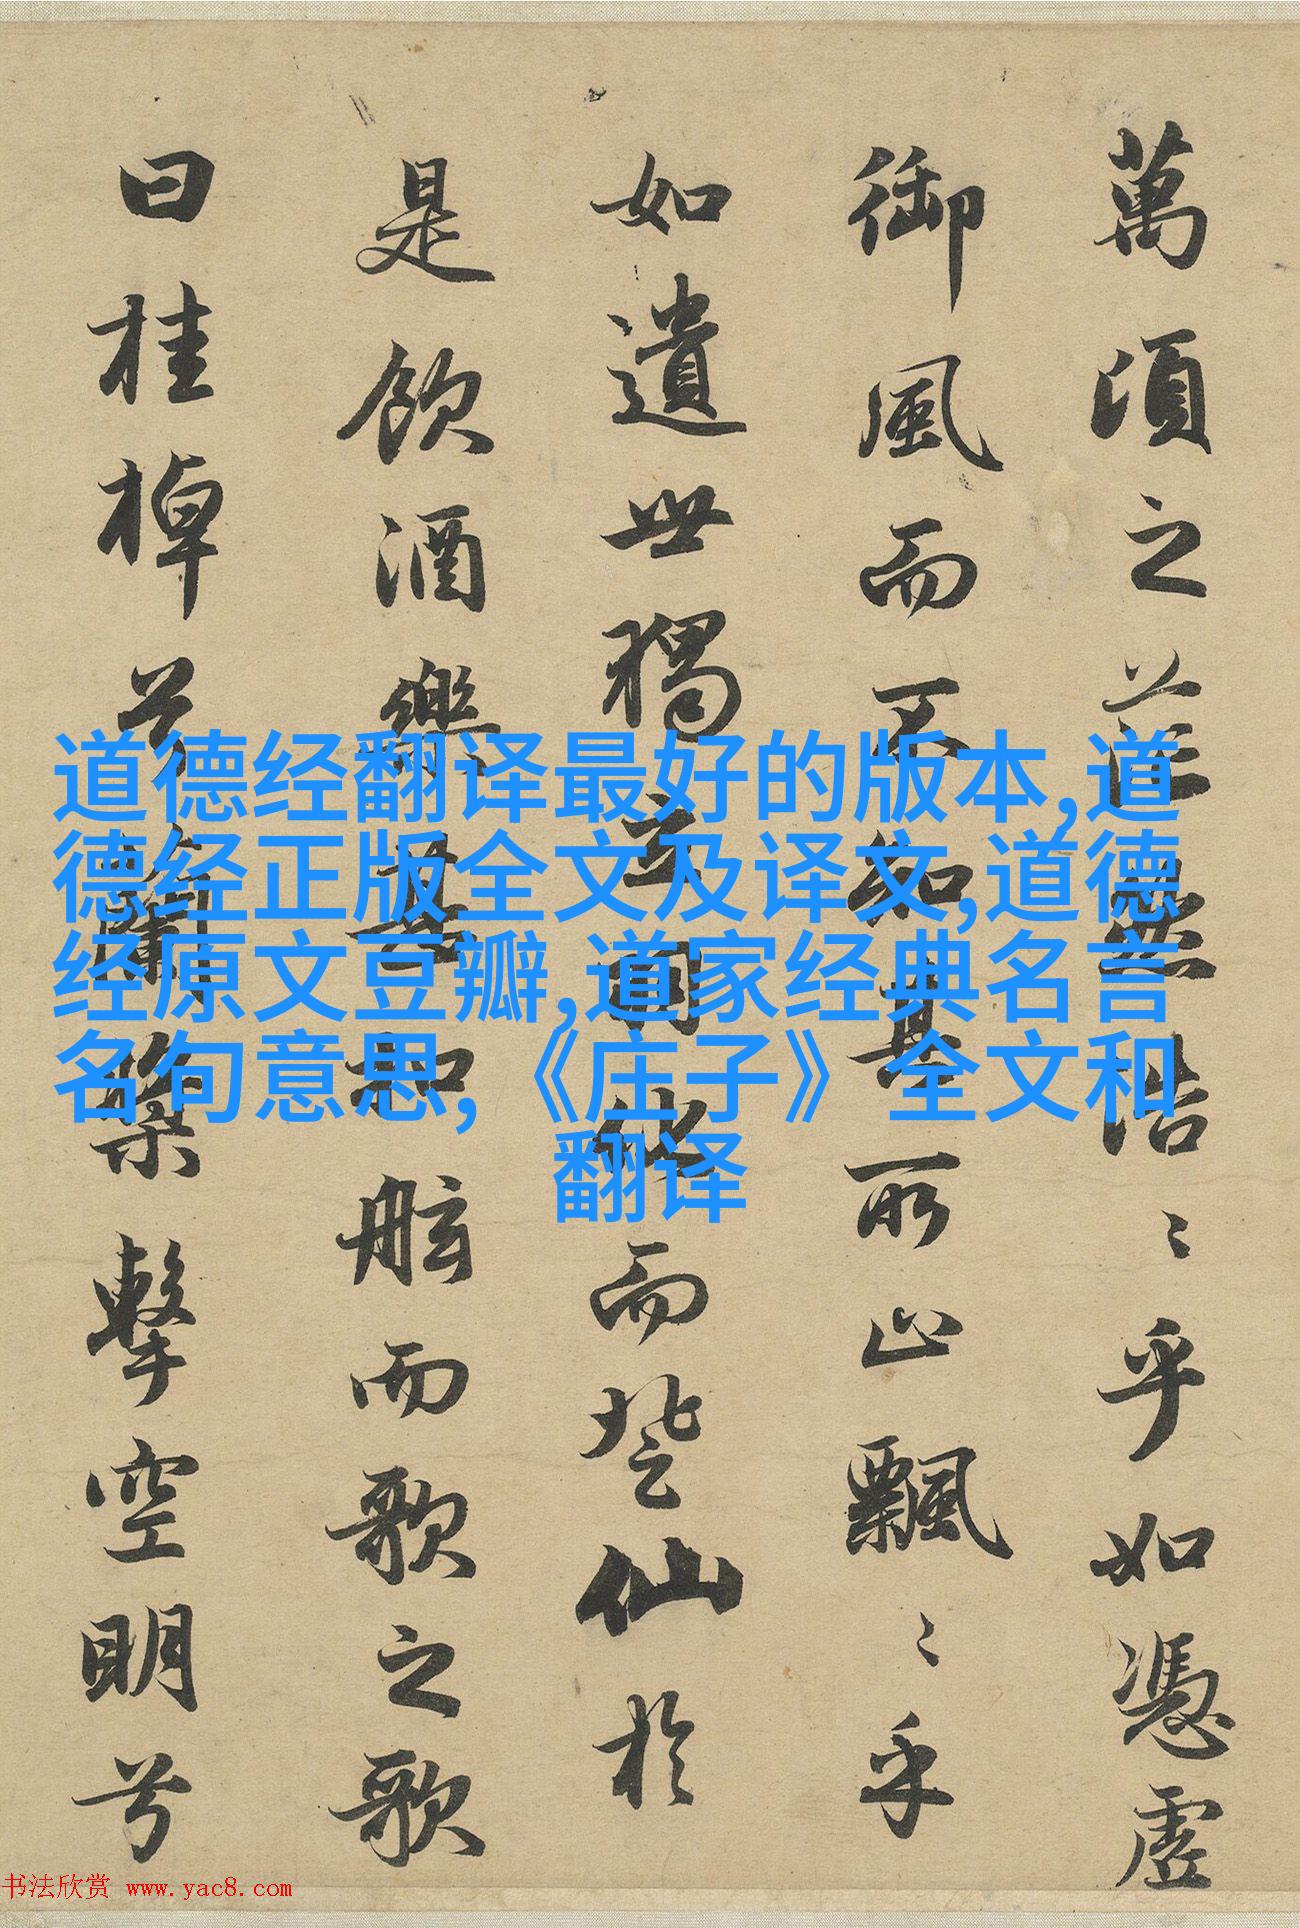 萬頃之茫然浩〻乎如憑虛
御風而不知其所止飄〻乎
如遺世獨立羽化而登仙於
是飲酒樂甚扣舷而歌之歌
曰桂棹兮蘭槳擊空明兮
道德经翻译最好的版本,道
德经正版全文及译文,道德
经原文豆瓣,道家经典名言
名句意思,《庄子》全文和
翻译
书法欣赏 www.yac8.com